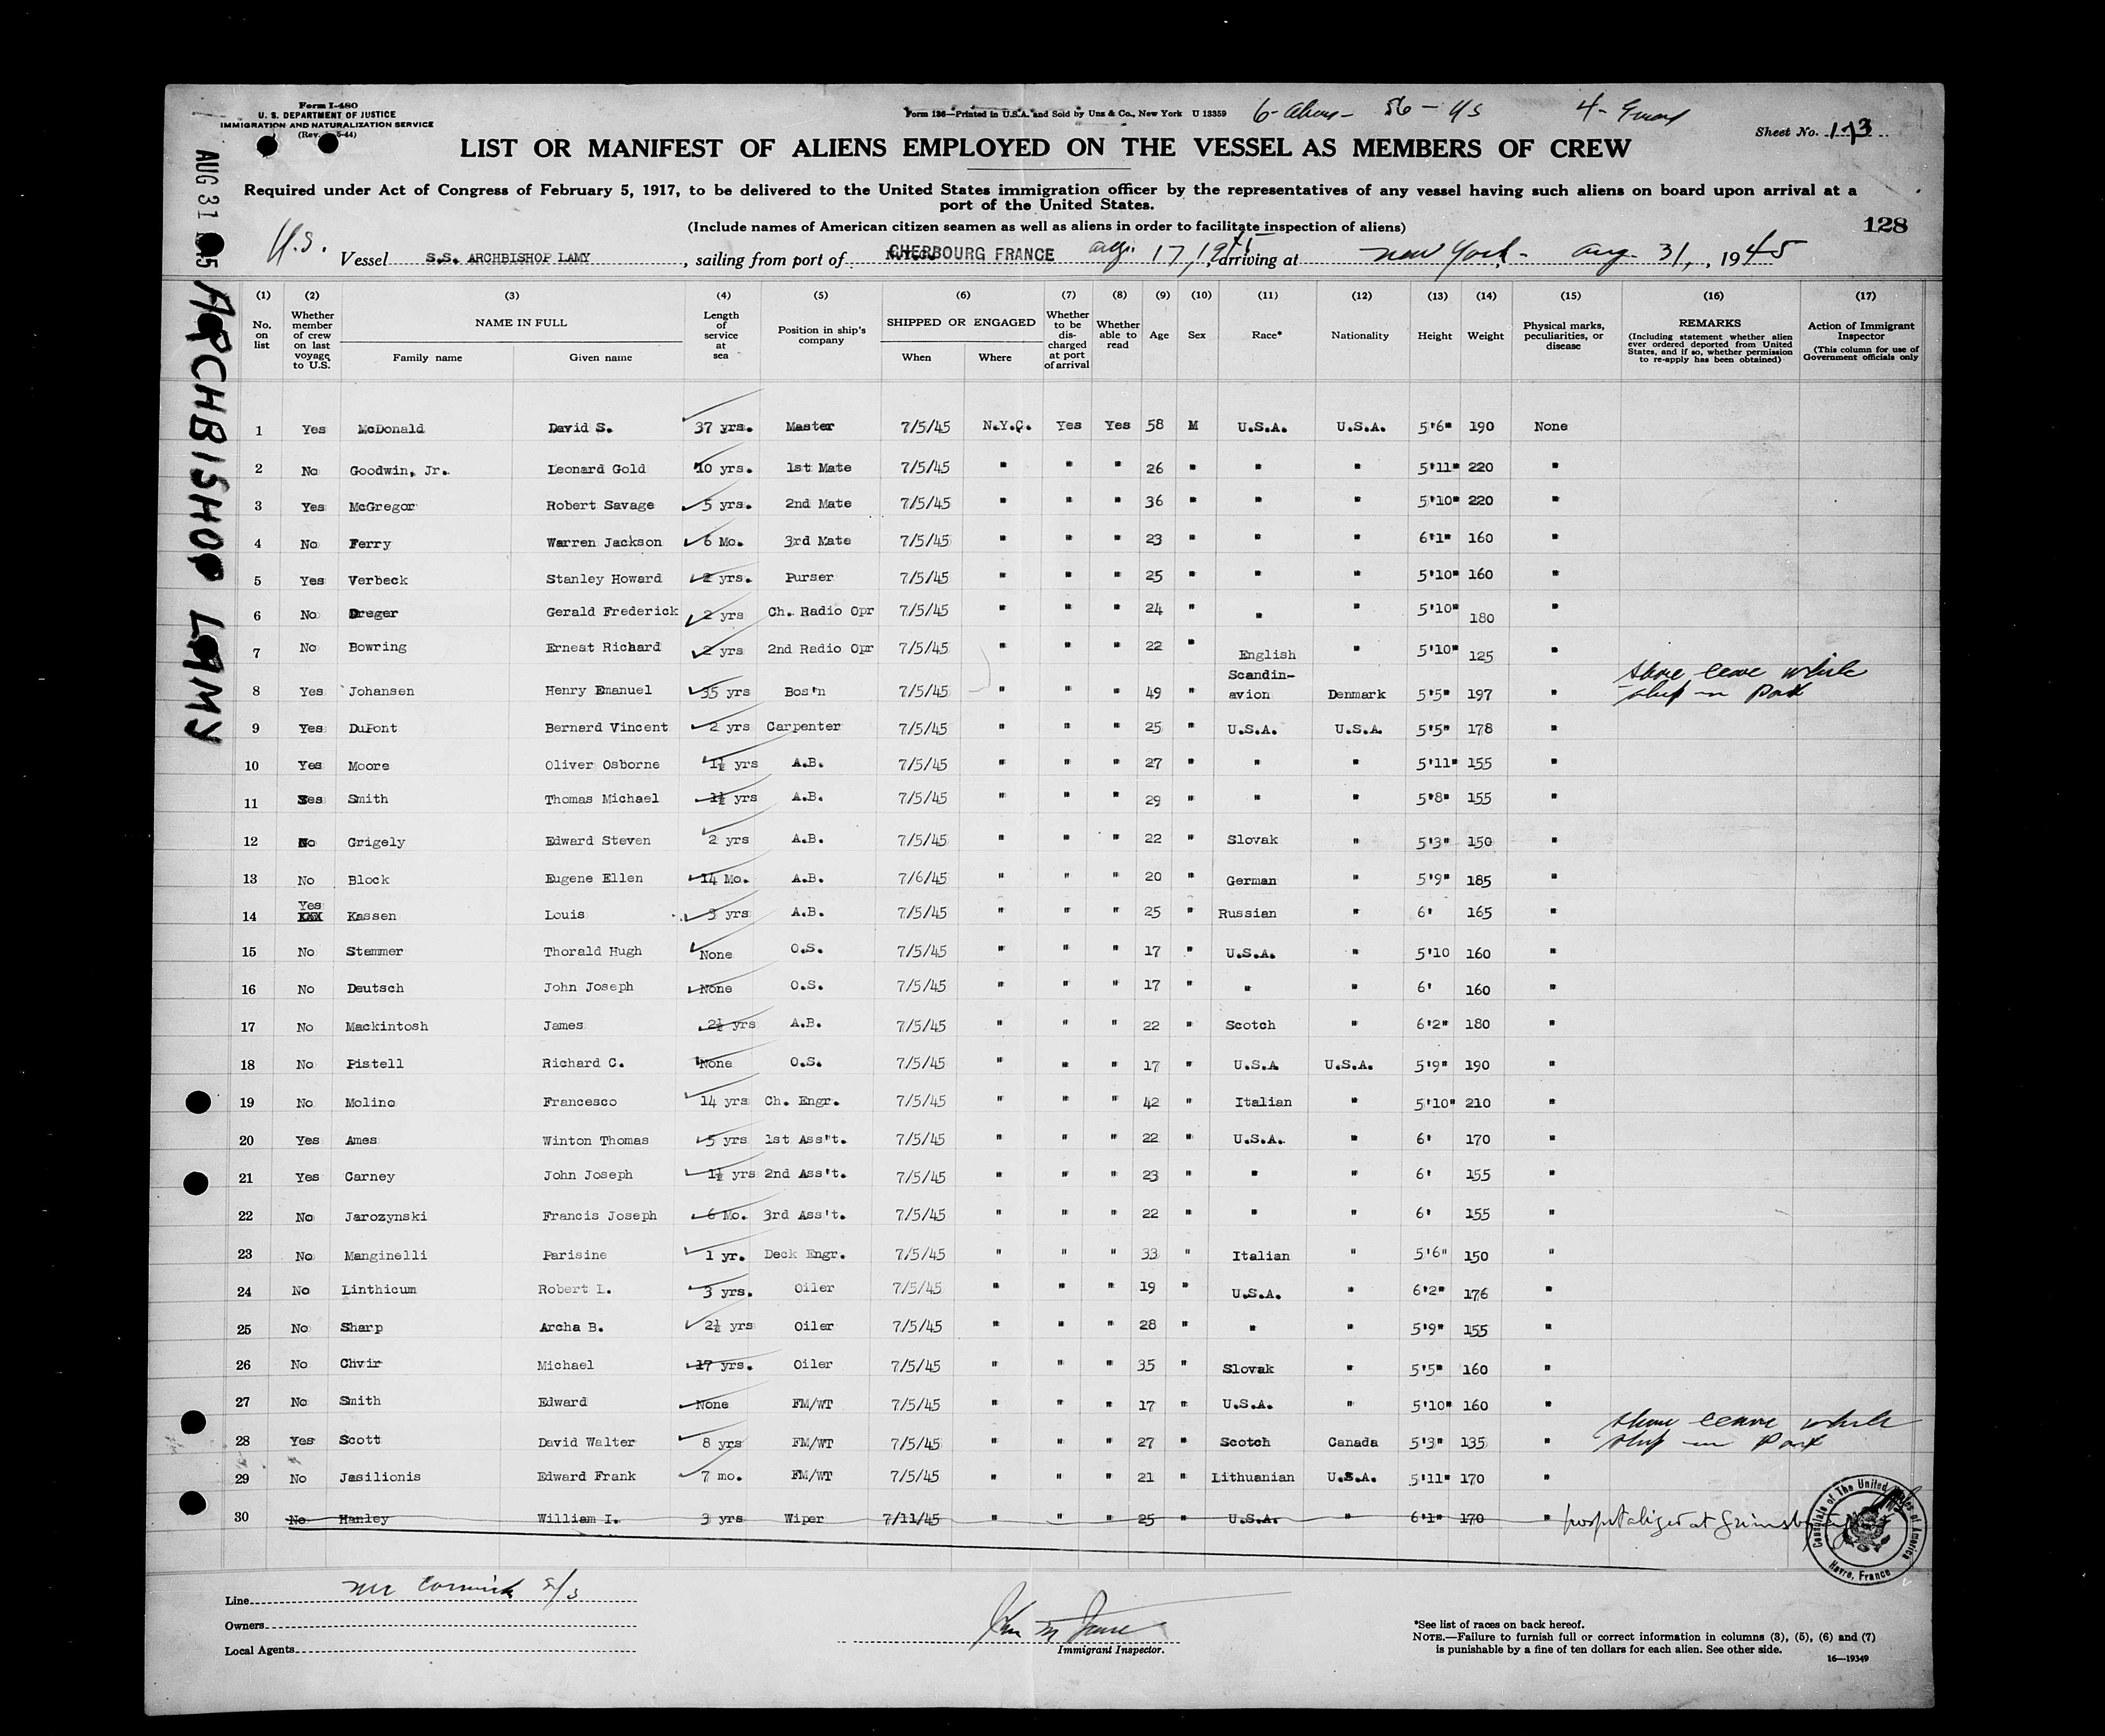 Form I-480
U. S. DEPARTMENT OF JUSTICE
IMMIGRATION AND NATURALIZATION SERVICE
(Rev. 5-44)
Form 136—Printed in U.S.A. and Sold by Unz & Co., New York U 13359
6- Aliens - 56 - US 4-
Sheet No.
LIST OR MANIFEST OF ALIENS EMPLOYED ON THE VESSEL AS MEMBERS OF CREW
Required under Act of Congress of February 5, 1917, to be delivered to the United States immigration officer by the representatives of any vessel having such aliens on board upon arrival at a
port of the United States.
(Include names of American citizen seamen as well as aliens in order to facilitate inspection of aliens)
128
AUG 31
ARCHBISHOP LAMY
U.S. Vessel S.S. ARCHBISHOP LAMY, sailing from port of CHERBOURG FRANCE Aug. 17, arriving at New York - Aug. 31, 1945
(1) (2) (3) (4) (5) (6) (7) (8) (9) (10) (11) (12) (13) (14) (15) (16) (17)
No. on list
Whether member of crew on last voyage to U.S.
NAME IN FULL
Family name Given name
Length of service at sea
Position in ship's company
SHIPPED OR ENGAGED
When Where
Whether to be discharged at port of arrival
Whether able to read
Age
Sex
Race*
Nationality
Height
Weight
Physical marks, peculiarities, or disease
REMARKS
(Including statement whether alien ever ordered deported from United States, and if so, whether permission to re-apply has been obtained)
Action of Immigrant Inspector
(This column for use of Government officials only
1 Yes McDonald David S. 37 yrs. Master 7/5/45 N.Y.C. Yes Yes 58 M U.S.A. U.S.A. 5'6" 190 None
2 No Goodwin, Jr. Leonard Gold 10 yrs. 1st Mate 7/5/45 " " " 26 " " " 5'11" 220 "
3 Yes McGregor Robert Savage 5 yrs. 2nd Mate 7/5/45 " " " 36 " " " 5'10" 220 "
4 No Ferry Warren Jackson 6 Mo. 3rd Mate 7/5/45 " " " 23 " " " 6'1" 160 "
5 Yes Verbeck Stanley Howard 2 yrs. Purser 7/5/45 " " " 25 " " " 5'10" 160 "
6 No Dreger Gerald Frederick 2 yrs Ch. Radio Opr 7/5/45 " " " 24 " " " 5'10" 180 "
7 No Bowring Ernest Richard 2 yrs 2nd Radio Opr 7/5/45 " " " 22 " English " 5'10" 125 "
8 Yes Johansen Henry Emanuel 35 yrs Bos'n 7/5/45 " " " 49 " Scandin-avion Denmark 5'5" 197 " shore leave while ship in Port
9 Yes DuPont Bernard Vincent 2 yrs Carpenter 7/5/45 " " " 25 " U.S.A. U.S.A. 5'5" 178 "
10 Yes Moore Oliver Osborne 1½ yrs A.B. 7/5/45 " " " 27 " " " 5'11" 155 "
11 Yes Smith Thomas Michael 1½ yrs A.B. 7/5/45 " " " 29 " " " 5'8" 155 "
12 No Grigely Edward Steven 2 yrs A.B. 7/5/45 " " " 22 " Slovak " 5'3" 150 "
13 No Block Eugene Ellen 14 Mo. A.B. 7/6/45 " " " 20 " German " 5'9" 185 "
14 Yes XXX Kassen Louis 3 yrs A.B. 7/5/45 " " " 25 " Russian " 6' 165 "
15 No Stemmer Thorald Hugh None O.S. 7/5/45 " " " 17 " U.S.A. " 5'10 160 "
16 No Deutsch John Joseph None O.S. 7/5/45 " " " 17 " " " 6' 160 "
17 No Mackintosh James 2½ yrs A.B. 7/5/45 " " " 22 " Scotch " 6'2" 180 "
18 No Pistell Richard C. None O.S. 7/5/45 " " " 17 " U.S.A U.S.A. 5'9" 190 "
19 No Molino Francesco 14 yrs Ch. Engr. 7/5/45 " " " 42 " Italian " 5'10" 210 "
20 Yes Ames Winton Thomas 5 yrs 1st Ass't. 7/5/45 " " " 22 " U.S.A. " 6' 170 "
21 Yes Carney John Joseph 1½ yrs 2nd Ass't. 7/5/45 " " " 23 " " " 6' 155 "
22 No Jarozynski Francis Joseph 6 Mo. 3rd Ass't. 7/5/45 " " " 22 " " " 6' 155 "
23 No Manginelli Parisine 1 yr. Deck Engr. 7/5/45 " " " 33 " Italian " 5'6" 150 "
24 No Linthicum Robert L. 3 yrs. Oiler 7/5/45 " " " 19 " U.S.A. " 6'2" 176 "
25 No Sharp Archa B. 2½ yrs Oiler 7/5/45 " " " 28 " " " 5'9" 155 "
26 No Chvir Michael 17 yrs. Oiler 7/5/45 " " " 35 " Slovak " 5'5" 160 "
27 No Smith Edward None FM/WT 7/5/45 " " " 17 " U.S.A. " 5'10" 160 "
28 Yes Scott David Walter 8 yrs FM/WT 7/5/45 " " " 27 " Scotch Canada 5'3" 135 " shore leave while ship in Port
29 No Jasilionis Edward Frank 7 mo. FM/WT 7/5/45 " " " 21 " Lithuanian U.S.A. 5'11" 170 "
30 No Hanley William I. 3 yrs Wiper 7/11/45 " " " 25 " U.S.A. " 6'1" 170 " hospitalized at Grimsby
Consulate of The United States of America
Havre, France
Line Mc Cormick S/S
Owners
Local Agents
Immigrant Inspector.
*See list of races on back hereof.
NOTE.—Failure to furnish full or correct information in columns (3), (5), (6) and (7)
is punishable by a fine of ten dollars for each alien. See other side.
16—19349